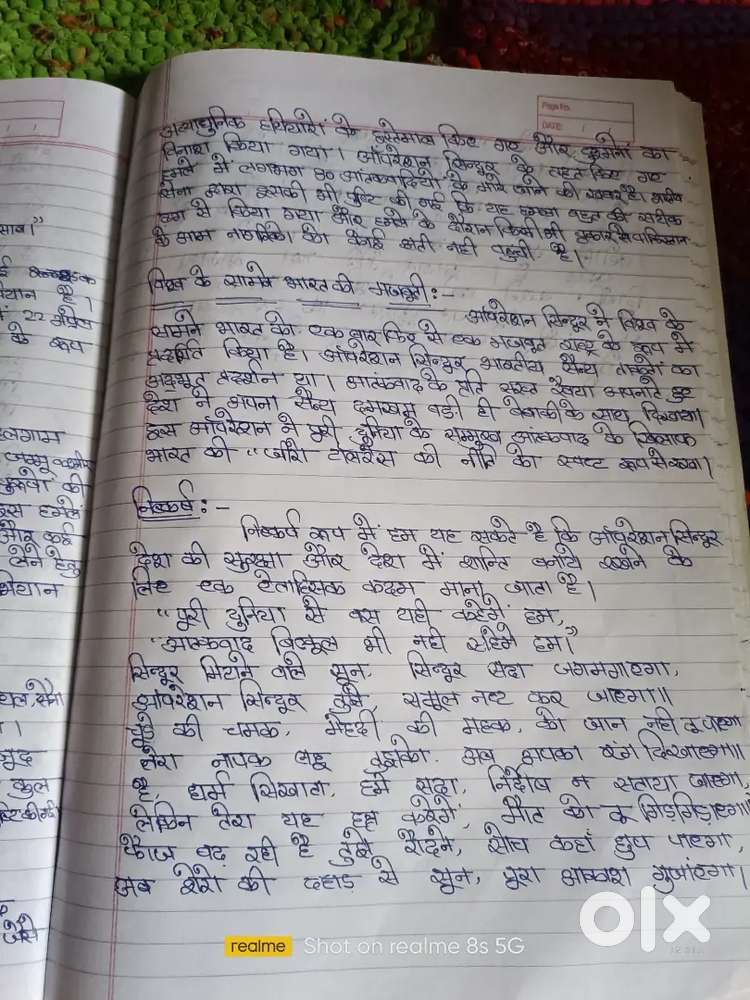 साब।"
यान है।
22 अप्रैल
के रूप
लगाम
जम्मू कश्मीर
पुरुषों की
इस हमले
और कई
लेने हेतु
भियान
सेना
युद्ध
कुल
जैसे
Page No.
DATE: / /
अत्याधुनिक हथियारों के इस्तेमाल किए गए और दुश्मनों का
विनाश किया गया। ऑपरेशन सिन्दूर के तहत किए गए
हमले में लगभग 90 आतंकवादियों के मारे जाने की खबर है।
सेना द्वारा इसकी भी पुष्टि की गई कि यह हमला बहुत ही सटीक
ढंग से किया गया और हमले के दौरान किसी भी प्रकार से पाकिस्तान
के आम नागरिकों को कोई क्षती नहीं पहुंची है।
विश्व के सामने भारत की मजबूती:-
ऑपरेशन सिन्दूर ने विश्व के
सामने भारत को एक बार फिर से एक मजबूत राष्ट्र के रूप में
प्रदर्शित किया है। ऑपरेशन सिन्दूर भारतीय सैन्य ताकतों का
अदभूत प्रदर्शन था। आतंकवाद के प्रति सख्त रवैया अपनाते हुए
देश ने अपना सैन्य दमखम बड़ी ही बेबाकी के साथ दिखाया।
इस ऑपरेशन ने पूरी दुनिया के सम्मुख आंतकवाद के खिलाफ
भारत की "जीरो टॉलरेंस की नीति को स्पष्ट रूप से रखा।
निष्कर्ष:-
निष्कर्ष रूप में हम यह सकते है कि ऑपरेशन सिन्दूर
देश की सुरक्षा और देश में शान्ति बनाये रखने के
लिए एक ऐतिहासिक कदम माना जाता है।
"पूरी दुनिया से बस यही कहेगें हम,
"आतकवाद बिल्कुल भी नही सहेगे हम।"
सिन्दूर मिटाने वाले सून, सिन्दूर सदा जगमगाएगा,
ऑपरेशन सिन्दूर तुझे, समूल नष्ट कर जाएगा॥
चूड़े की चमक, मेहदी की महक, को जान नही तू पाएगा
तेरा नापक लहू तुझको, अब अपका रंग दिखाएगा॥
है, धर्म सिखाता, हमे सदा, निर्दोष न सताया जाएगा,
लेकिन तेरा यह हश्र करेगें, मौत को तू गिड़गिड़ाएगा॥
फौज बढ़ रही है तुझे रौंदने, सोच कहाँ छुप पाएगा,
अब शेरो की दहाड़ से सून, पूरा आकाश गुजांएगा।
realme Shot on realme 8s 5G
olx